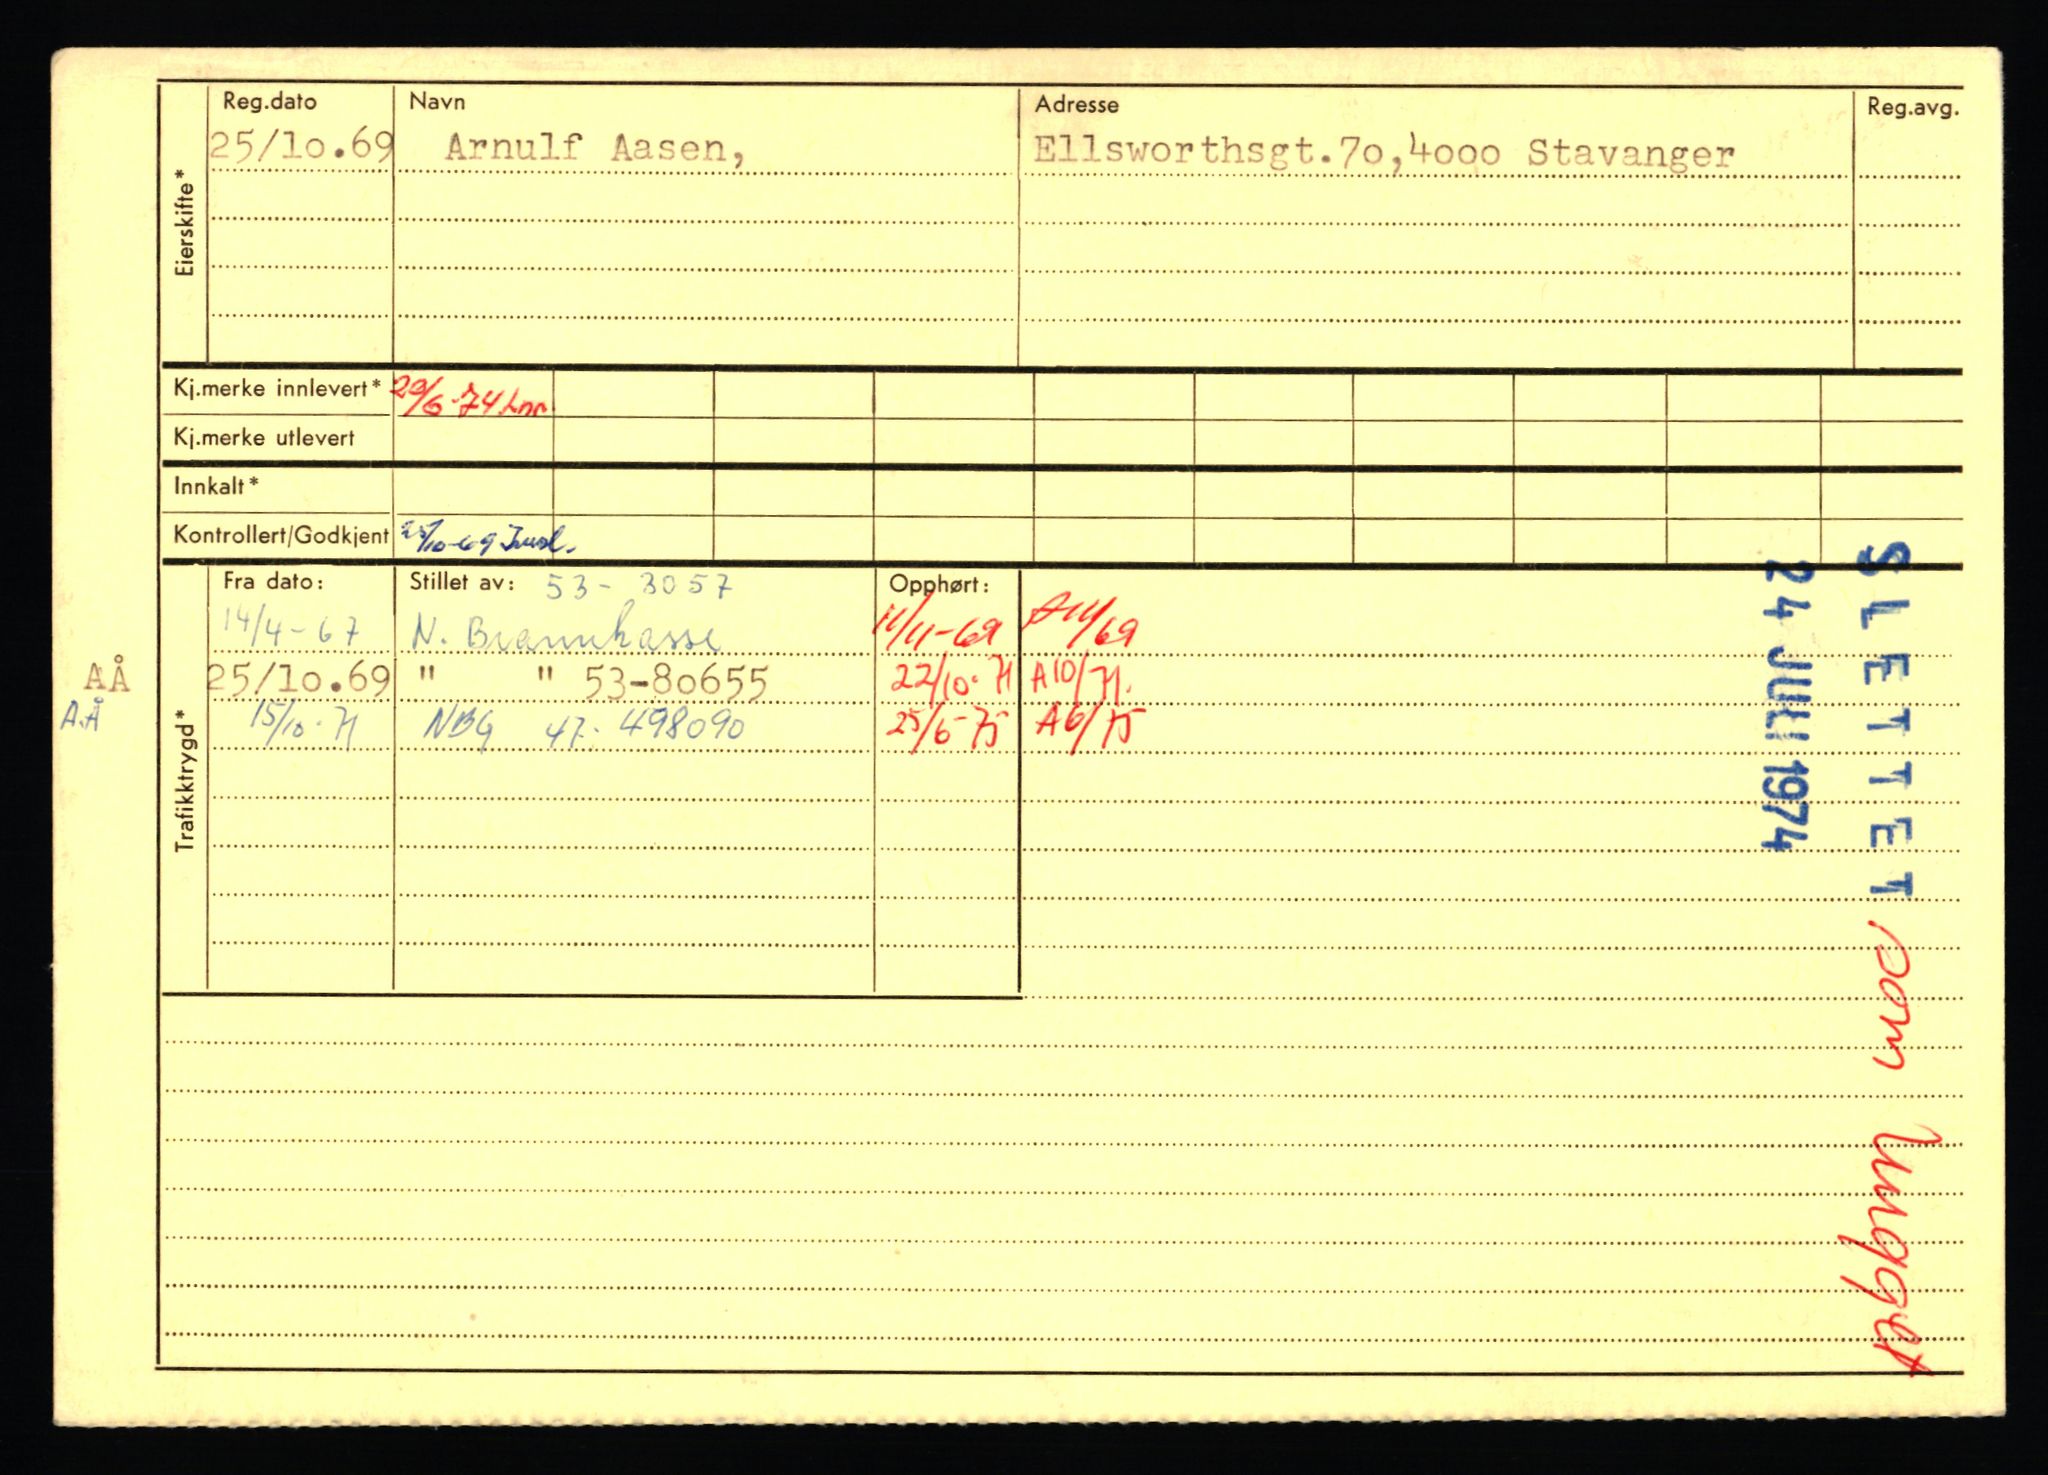 Reg.dato Navn Adresse Reg.avg.
25/10.69 Arnulf Aasen, Ellsworthsgt.70,4000 Stavanger
Eierskifte*
Kj.merke innlevert* 29/6-74
Kj.merke utlevert
Innkalt*
Kontrollert/Godkjent 25/10-69
Fra dato: Stillet av: 53-3057 Opphørt:
14/4-67 N. Brannkasse 11/11-69 A11/69
AÅ 25/10.69 " " 53-80655 22/10-71 A10/71.
A.Å 15/10-71 NBG 47-498090 25/6-75 A6/75
Trafikktrygd*
SLETTET som hugget
24 JULI 1974